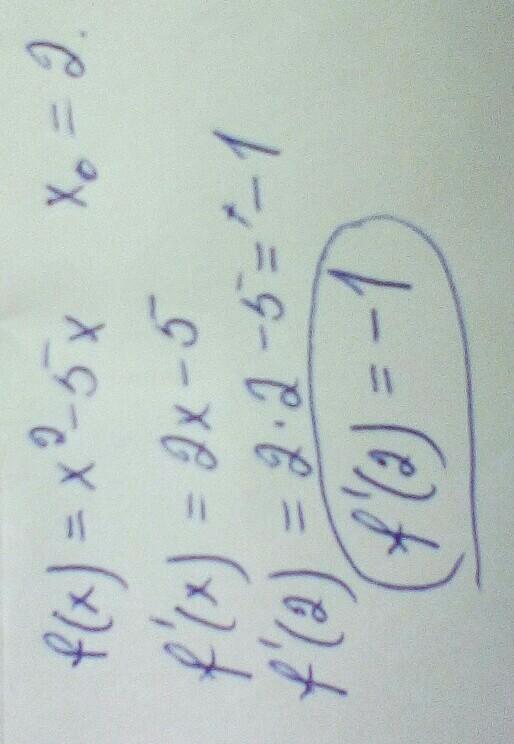 f(x) = x² - 5x    x₀ = 2.
f'(x) = 2x - 5
f'(2) = 2·2 - 5 = -1
f'(2) = -1